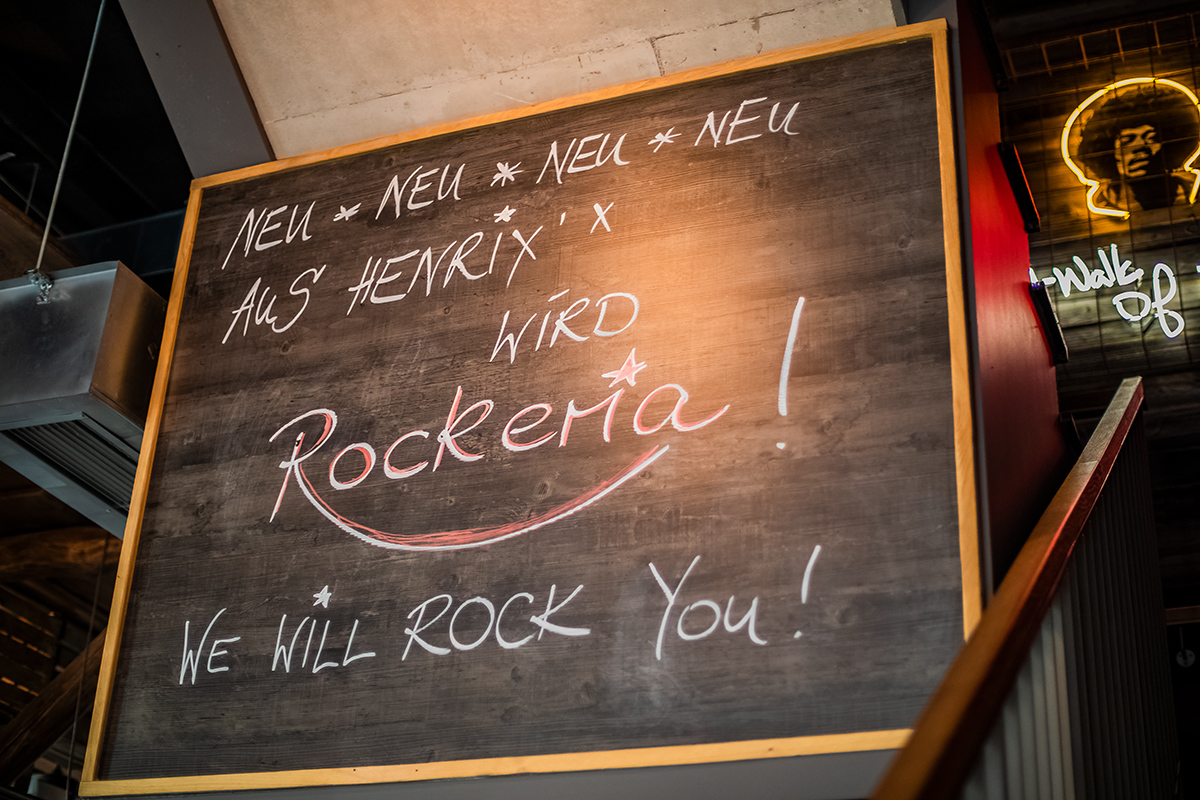 NEU * NEU * NEU * NEU
AUS HENRIX' x
WIRD
Rockeria !
WE WILL ROCK YOU!
Walk
of